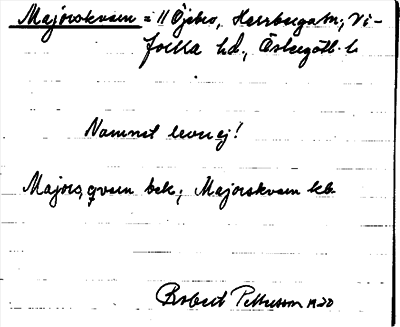 Majorskvarn = // Öjebro, Herrberga sn, Vi-
folka hd, Östergötl. l.
Namnet lever ej!
Majors qvarn bek; Majorskvarn kb
Robert Pettersson 1930